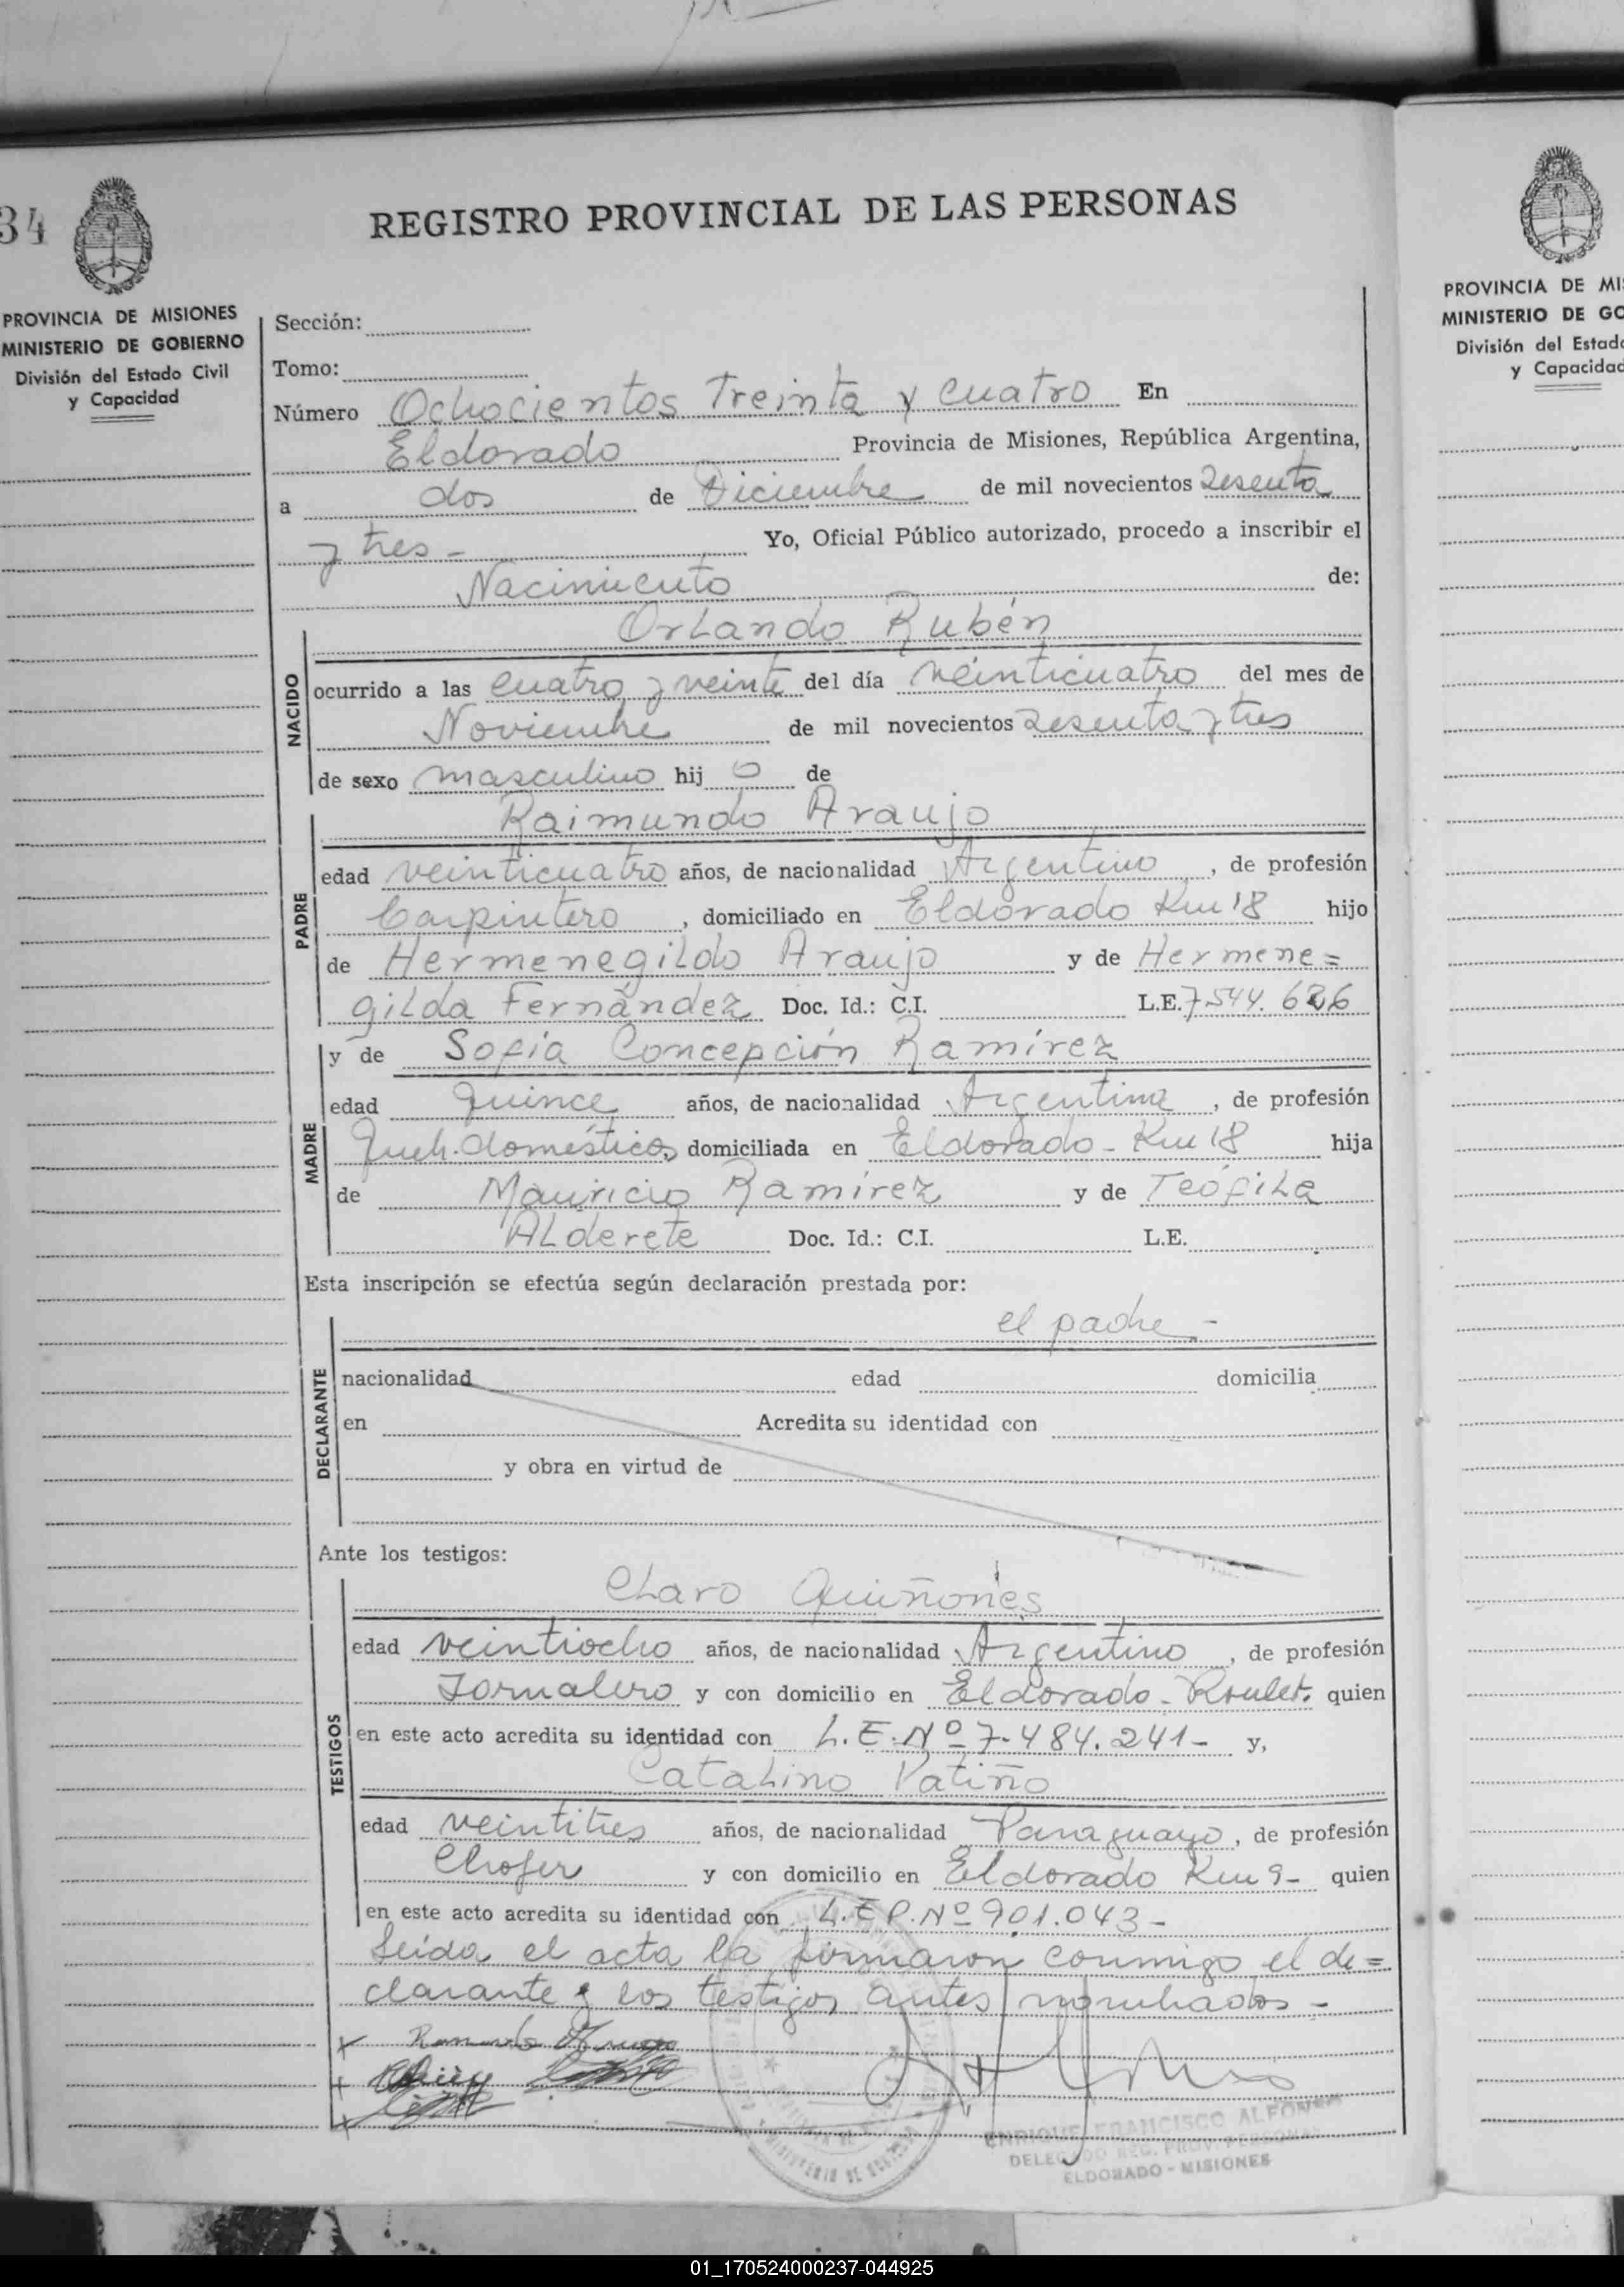 34
REGISTRO PROVINCIAL DE LAS PERSONAS
PROVINCIA DE MISIONES
MINISTERIO DE GOBIERNO
División del Estado Civil
y Capacidad
Sección:
Tomo:
Número Ochocientos Treinta y cuatro En
Eldorado Provincia de Misiones, República Argentina,
a dos de Diciembre de mil novecientos sesenta
y tres - Yo, Oficial Público autorizado, procedo a inscribir el
Nacimiento de:
Orlando Rubén
NACIDO
ocurrido a las cuatro y veinte del día veinticuatro del mes de
Noviembre de mil novecientos sesenta y tres
de sexo masculino hij o de
Raimundo Araujo
PADRE
edad veinticuatro años, de nacionalidad Argentino, de profesión
Carpintero, domiciliado en Eldorado Km 18 hijo
de Hermenegildo Araujo y de Hermene=
gilda Fernández Doc. Id.: C.I. L.E. 7.544.626
y de Sofía Concepción Ramírez
MADRE
edad quince años, de nacionalidad Argentina, de profesión
Queh. domésticos, domiciliada en Eldorado - Km 18 hija
de Mauricio Ramírez y de Teófila
Alderete Doc. Id.: C.I. L.E.
Esta inscripción se efectúa según declaración prestada por:
el padre -
DECLARANTE
nacionalidad edad domicilia
en Acredita su identidad con
y obra en virtud de
Ante los testigos:
Claro Quiñones
TESTIGOS
edad veintiocho años, de nacionalidad Argentino, de profesión
Jornalero y con domicilio en Eldorado - quien
en este acto acredita su identidad con L.E. Nº 7.484.241 - y,
Catalino Patiño
edad veintitres años, de nacionalidad Paraguayo, de profesión
Chofer y con domicilio en Eldorado Km 9 - quien
en este acto acredita su identidad con L.E.P. Nº 901.043 -
Leída el acta la firmaron conmigo el de=
clarante y los testigos antes nombrados -
ENRIQUE FRANCISCO ALFONSO
DELEGADO REG. PROV. PERSONAS
ELDORADO - MISIONES
PROVINCIA DE MI
MINISTERIO DE GO
División del Estado
y Capacidad
01_170524000237-044925